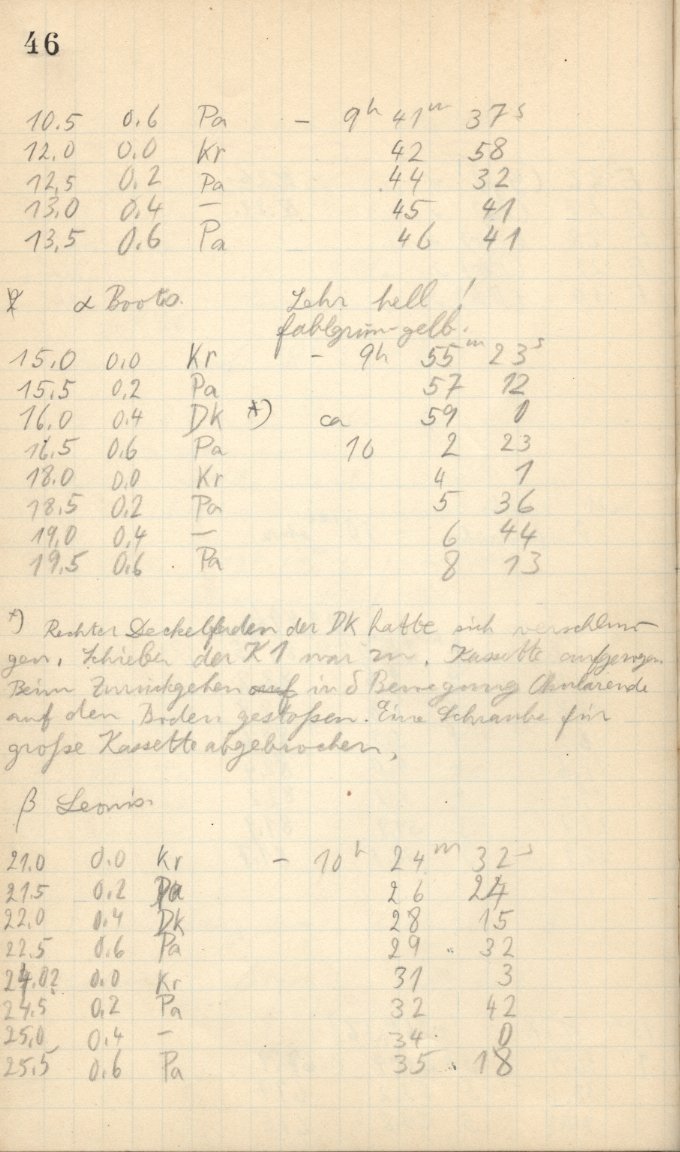 46
10.5 0.6 Pa – 9h 41m 37s
12.0 0.0 Kr 42 58
12.5 0.2 Pa 44 32
13.0 0.4 – 45 41
13.5 0.6 Pa 46 41
α Bootis. Sehr hell!
fahlgrün-gelb.
15.0 0.0 Kr – 9h 55m 23s
15.5 0.2 Pa 57 12
16.0 0.4 DK *) ca 59 0
16.5 0.6 Pa 10 2 23
18.0 0.0 Kr 4 1
18.5 0.2 Pa 5 36
19.0 0.4 – 6 44
19.5 0.6 Pa 8 13
*) Rechter Deckelfaden der DK hatte sich verschlun-
gen, Schieber der K1 war zu, Kassette aufgezogen.
Beim Zurückgehen auf in δ Bewegung Okularende
auf den Boden gestoßen. Eine Schraube für
große Kassette abgebrochen,
β Leonis
21.0 0.0 Kr – 10h 24m 32s
21.5 0.2 Pa 26 24
22.0 0.4 DK 28 15
22.5 0.6 Pa 29 32
24.0? 0.0 Kr 31 3
24.5 0.2 Pa 32 42
25.0 0.4 – 34 0
25.5 0.6 Pa 35 18